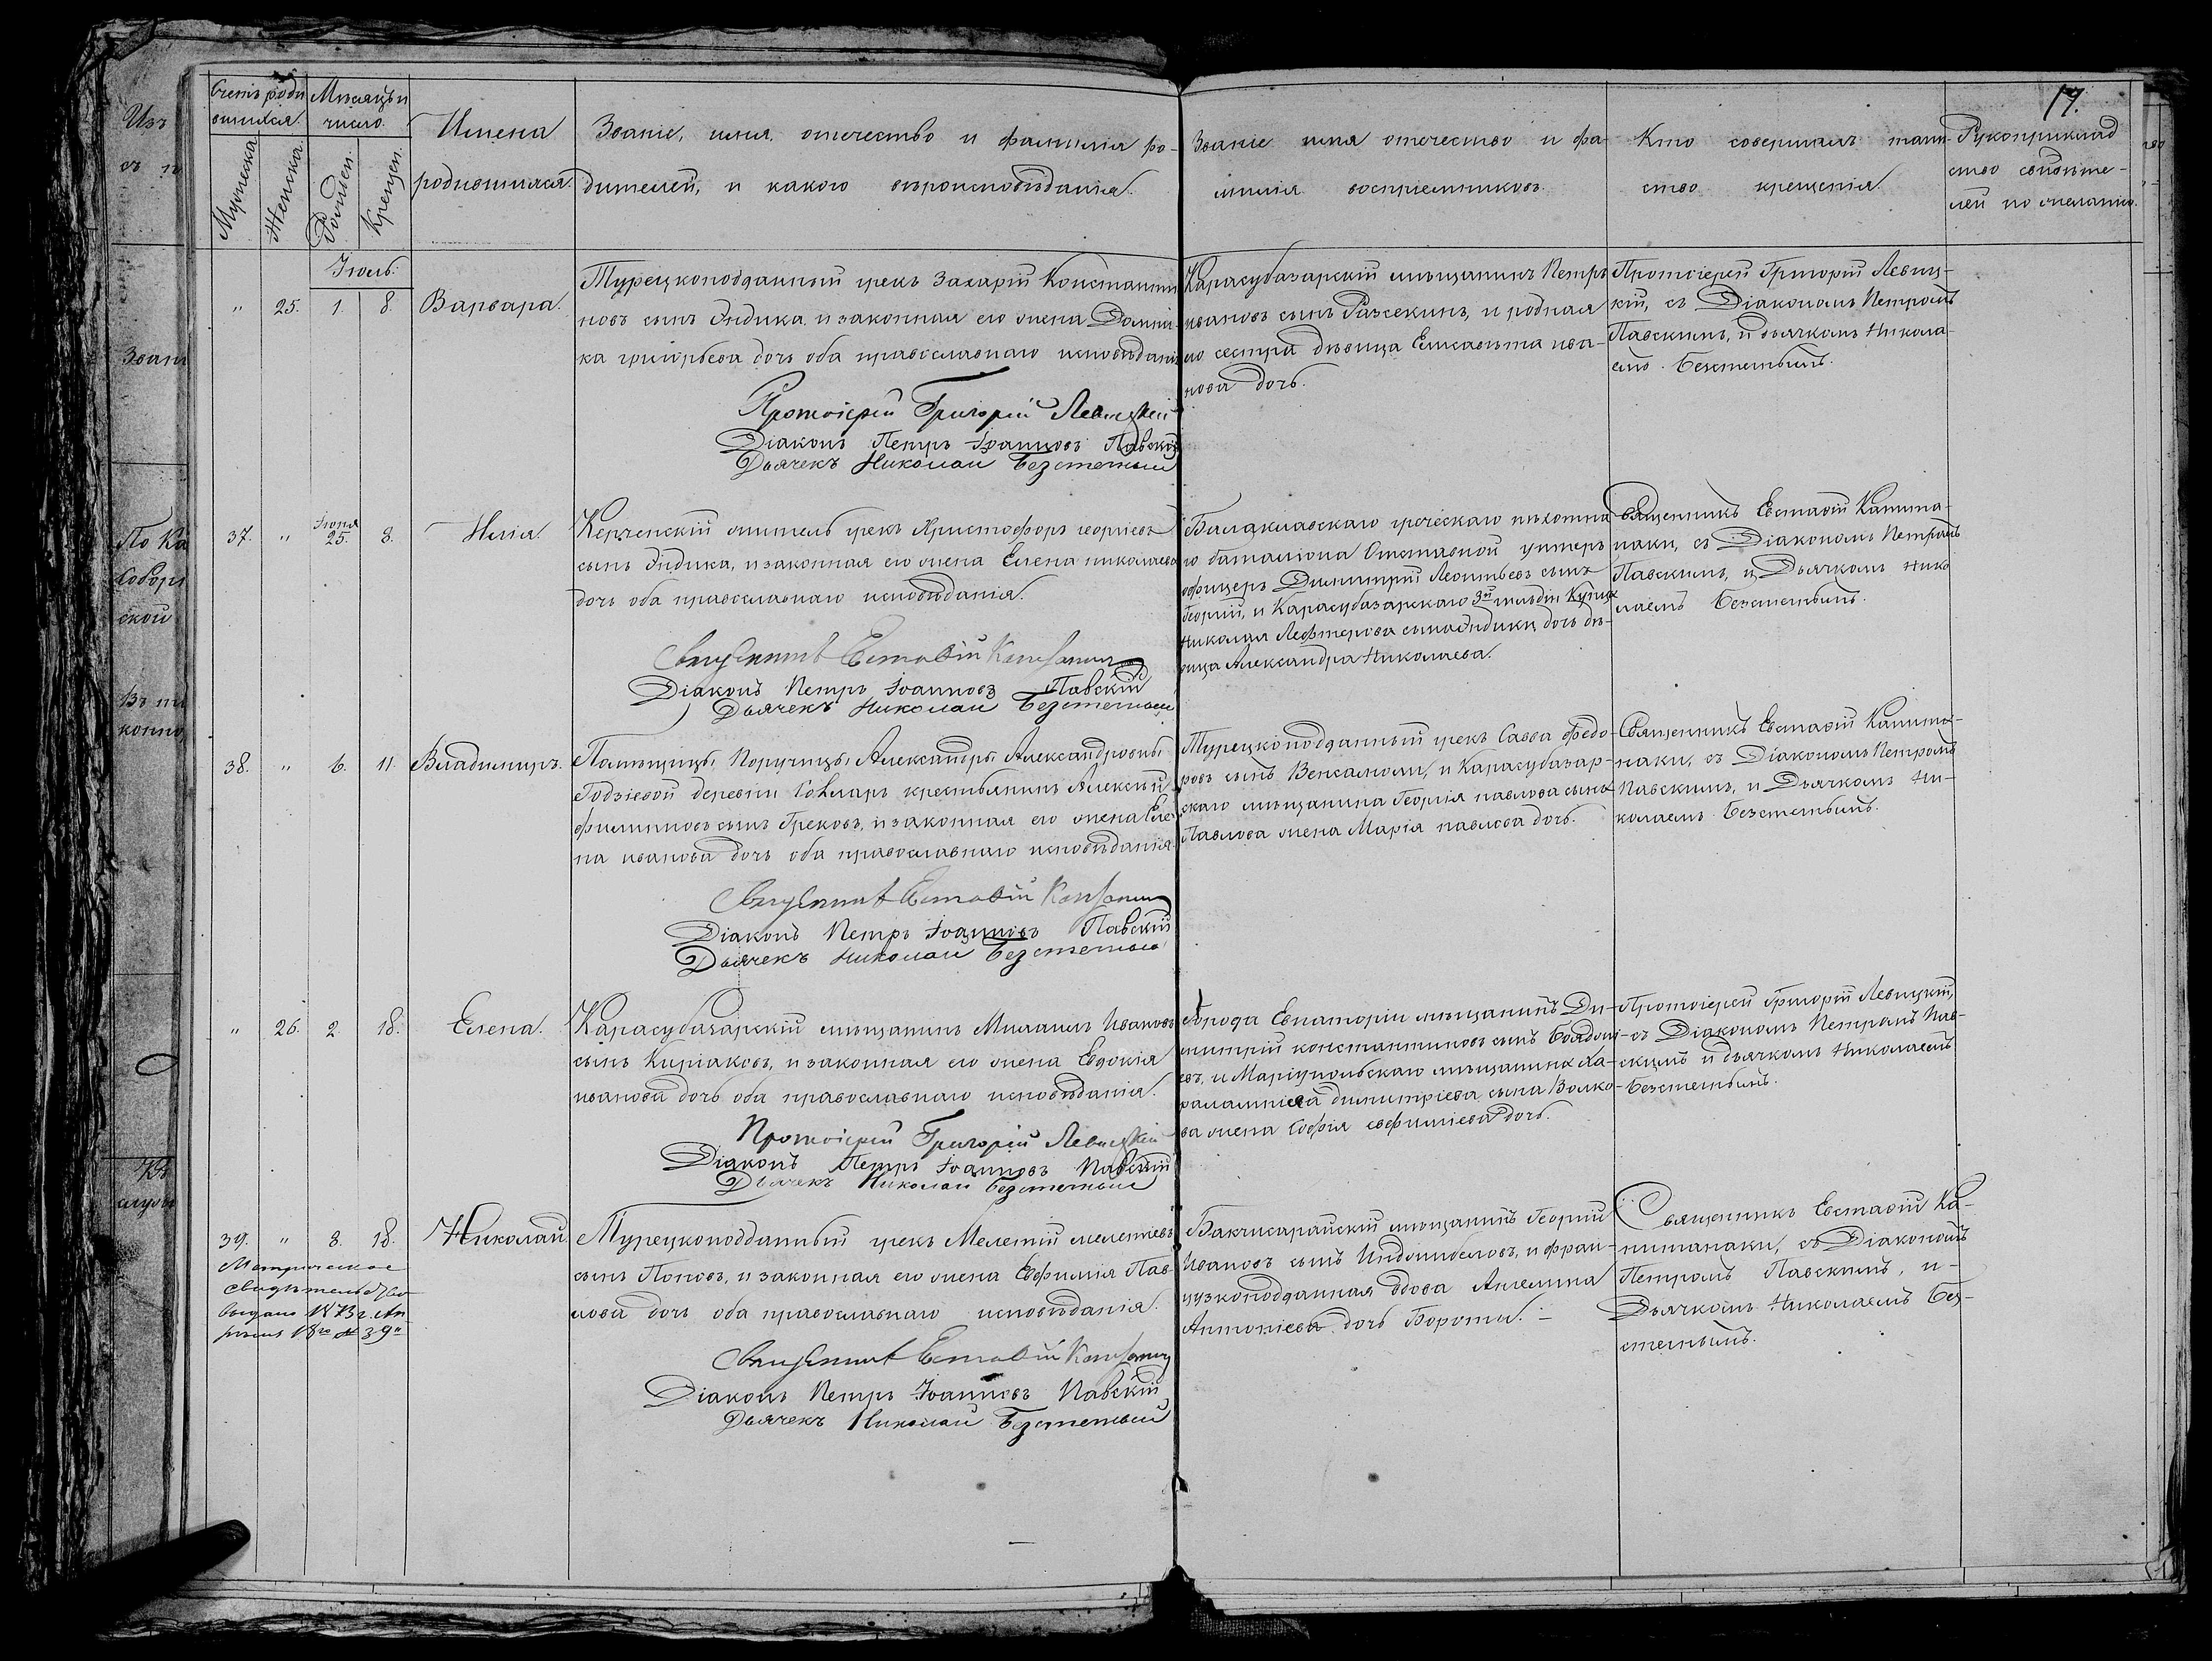 17.
Счетъ роди
вшихся.
Мужеска
Женска.
Мѣсяцъ и
число.
Рожден.
Крещен.
Имена
родившихся.
Званіе, имя, отечество и фамилія ро-
дителей, и какого вѣроисповѣданія.
Званіе имя отечество и фа-
милія воспріемниковъ.
Кто совершалъ таин-
ство крещенія.
Рукоприклад
ство свидѣте-
лей по желанію.
Іюль.
" 25. 1. 8. Варвара.
Турецкоподданный грекъ Захарій Константи
новъ сынъ Эндика, и законная его жена Домни-
ка григорьева дочь оба православнаго исповѣданія
Протоіерей Григорій Левицкій
Діаконъ Петръ Іоанновъ Павскій
Дьячекъ Николай Безсмертный
Карасубазарскій мѣщанинъ Петръ
ивановъ сынъ Разсекинъ, и родная
его сестра дѣвица Елисавета ива-
нова дочь.
Протоіерей Григорій Левиц-
кій, съ Діакономъ Петромъ
Павскимъ, и дьячкомъ Никола-
емъ Безсмертнымъ.
37. " Іюня 25. 8. Илія.
Керченскій житель грекъ Христофоръ георгіевъ
сынъ Эндика, и законная его жена Елена николаева
дочь оба православнаго исповѣданія.
Священникъ Евстафій Капитанаки
Діаконъ Петръ Іоанновъ Павскій
Дьячекъ Николай Безсмертный
Балаклавскаго греческаго пѣхотна
го баталіона Отставной унтеръ
офицеръ Димитрій Леонтьевъ сынъ
Георгій, и Карасубазарскаго 3й гильдіи Купца
Николая Лефтерова сына Эндики дочь дѣ-
вица Александра Николаева.
Священникъ Евстафій Капита-
наки, съ Діакономъ Петромъ
Павскимъ, и Дьячкомъ Нико
лаемъ Безсмертнымъ.
38. " 6. 11. Владимиръ.
Помѣщицы Поручицы Александры Александровны
Годзіевой деревни крестьянинъ Алексѣй
филиповъ сынъ Грековъ, и законная его жена Еле-
на иванова дочь оба православнаго исповѣданія.
Священникъ Евстафій Капитанаки
Діаконъ Петръ Іоанновъ Павскій
Дьячекъ Николай Безсмертный
Турецкоподданный грекъ Савва федо-
ровъ сынъ и Карасубазар-
скаго мѣщанина Георгія павлова сына
Павлова жена Марія павлова дочь.
Священникъ Евстафій Капита-
наки, съ Діакономъ Петромъ
Павскимъ, и Дьячкомъ Ни-
колаемъ Безсмертнымъ.
" 26. 2. 18. Елена.
Карасубазарскій мѣщанинъ Михаилъ Ивановъ
сынъ Киріаковъ, и законная его жена Евдокія
иванова дочь оба православнаго исповѣданія.
Протоіерей Григорій Левицкій
Діаконъ Петръ Іоанновъ Павскій
Дьячекъ Николай Безсмертный
Города Евпаторіи мѣщанинъ Ди-
митрій константиновъ сынъ
евъ, и Маріупольскаго мѣщанина Ха-
рлампіева димитріева сына Волко-
ва жена Софія евфиміева дочь.
Протоіерей Григорій Левицкій,
съ Діакономъ Петромъ Пав-
скимъ и дьячкомъ Николаемъ
Безсмертнымъ.
39. " 8. 18. Николай
Метрическое
свидѣтельство
выдано 1873 г. Ап
рѣля 18го № 39й
Турецкоподданный грекъ Мелетій мелетіевъ
сынъ Поповъ, и законная его жена Евфимія Пав-
лова дочь оба православнаго исповѣданія.
Священникъ Евстафій Капитанаки
Діаконъ Петръ Іоанновъ Павскій
Дьячекъ Николай Безсмертный
Бахчисарайскій мѣщанинъ Георгій
Ивановъ сынъ и фран-
цузкоподданная вдова Ангелина
Антоніева дочь
Священникъ Евстафій Ка-
питанаки, съ Діакономъ
Петромъ Павскимъ, и-
Дьячкомъ Николаемъ Без-
смертнымъ.